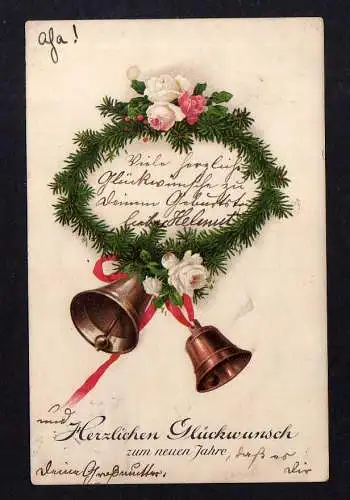 Aha!
Viele herzliche
Glückwünsche zu
Deinem Geburtstag
lieber Helmut
und
Herzlichen Glückwunsch
zum neuen Jahre, daß es
Deine Großmutter. Dir